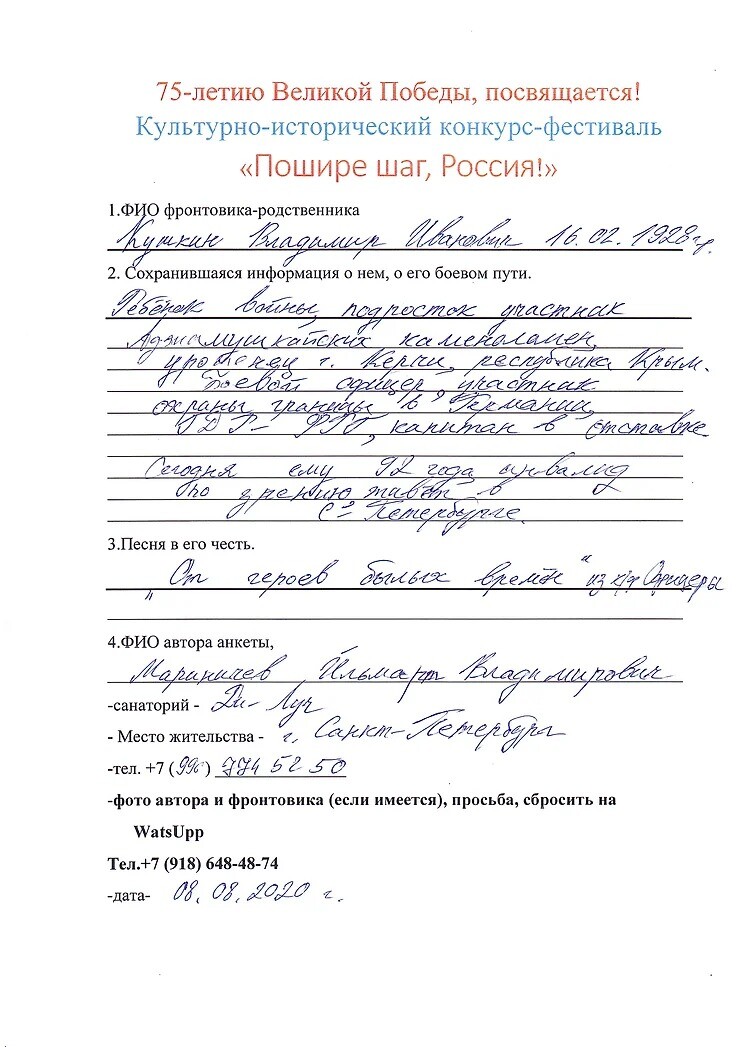 75-летию Великой Победы, посвящается!
Культурно-исторический конкурс-фестиваль
«Пошире шаг, Россия!»
1.ФИО фронтовика-родственника
Кушкин Владимир Иванович 16.02.1928 г.
2. Сохранившаяся информация о нем, о его боевом пути.
Ребёнок войны, подросток участник
Аджимушкайских каменоломен,
г. Керчи, республика Крым.
Боевой офицер, участник
охраны границы в Германии,
ГДР – ФРГ, капитан в отставке.
Сегодня ему 92 года инвалид
по зрению живёт в
С-Петербурге.
3.Песня в его честь.
„От героев былых времён" из к/ф Офицеры
4.ФИО автора анкеты,
Мариничев Ильмарт Владимирович
-санаторий - Ди-Луч
- Место жительства - г. Санкт-Петербург
-тел. +7 (996) 774 52 50
-фото автора и фронтовика (если имеется), просьба, сбросить на
WatsUpp
Тел.+7 (918) 648-48-74
-дата- 08.08.2020 г.